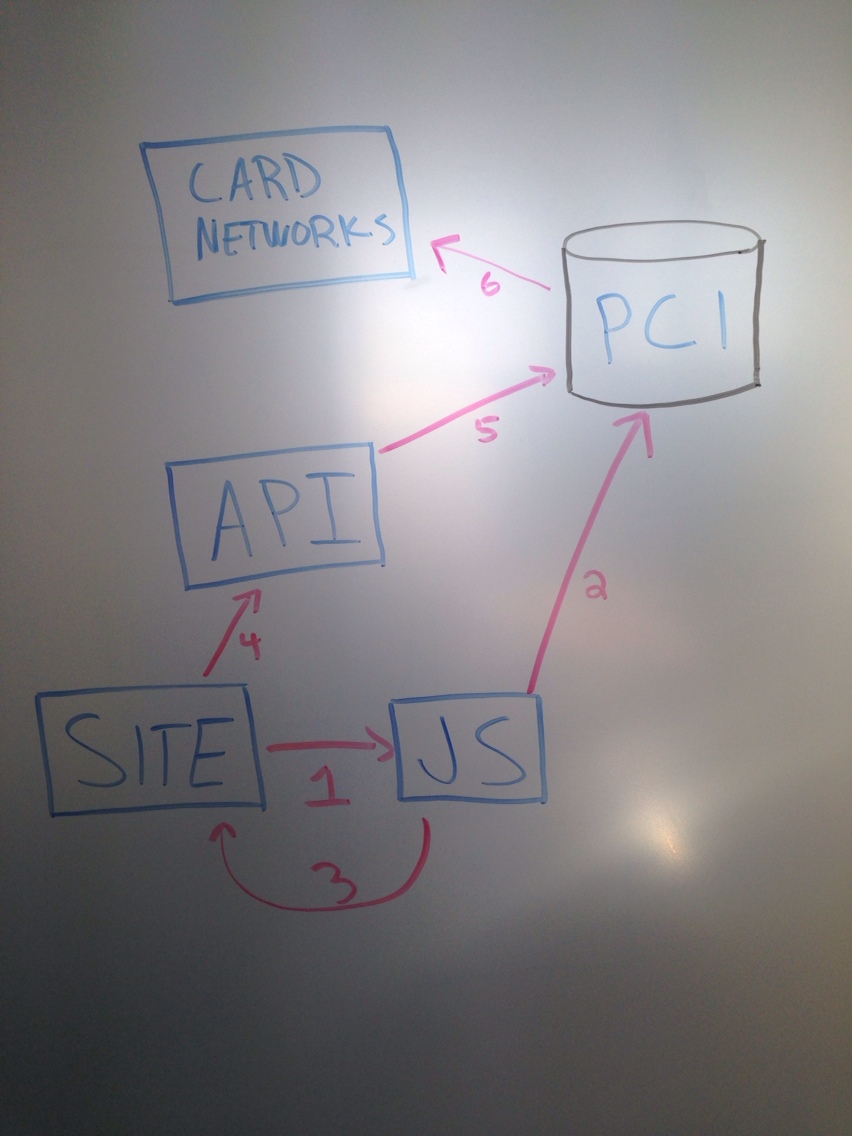 CARD
NETWORKS
6
PCI
5
API
2
4
SITE
1
JS
3